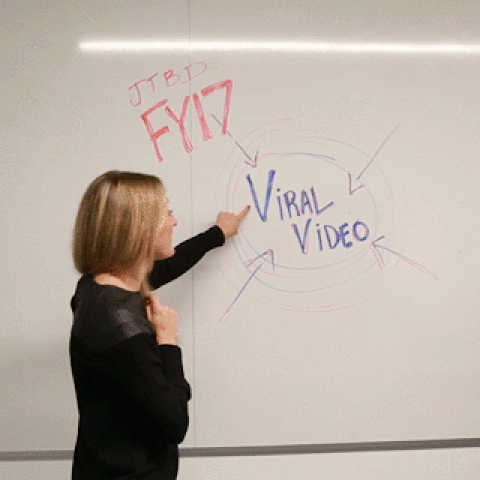 JTBD
FY17
VIRAL
VIDEO